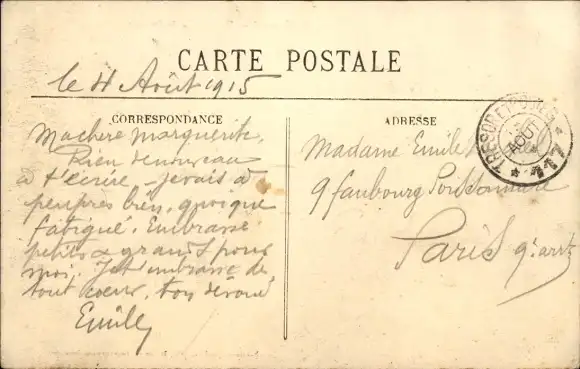 CARTE POSTALE
le 4 Août 1915
CORRESPONDANCE
Ma chere marguerite.
Rien de nouveau
à t'écrire - je vais à
peu pres bien, quoique
fatigué. Embrasse
petits & grands pour
moi. Je t'embrasse de
tout coeur, ton dévoué
Emile
ADRESSE
Madame Emile
9 faubourg Poissonnière
Paris 9e arrt
TRESOR ET POSTES
AOUT
* 117 *